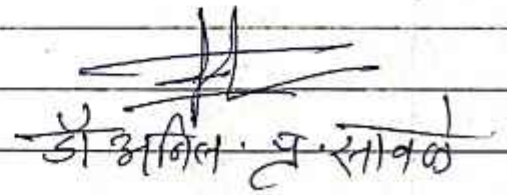 डॉ अनिल. प्र. सावळे